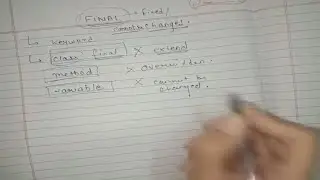 FINAL → fixed /
constt changed.
↳ keyword
↳ class final × extend
method × overridden.
variable × cannot be
changed.